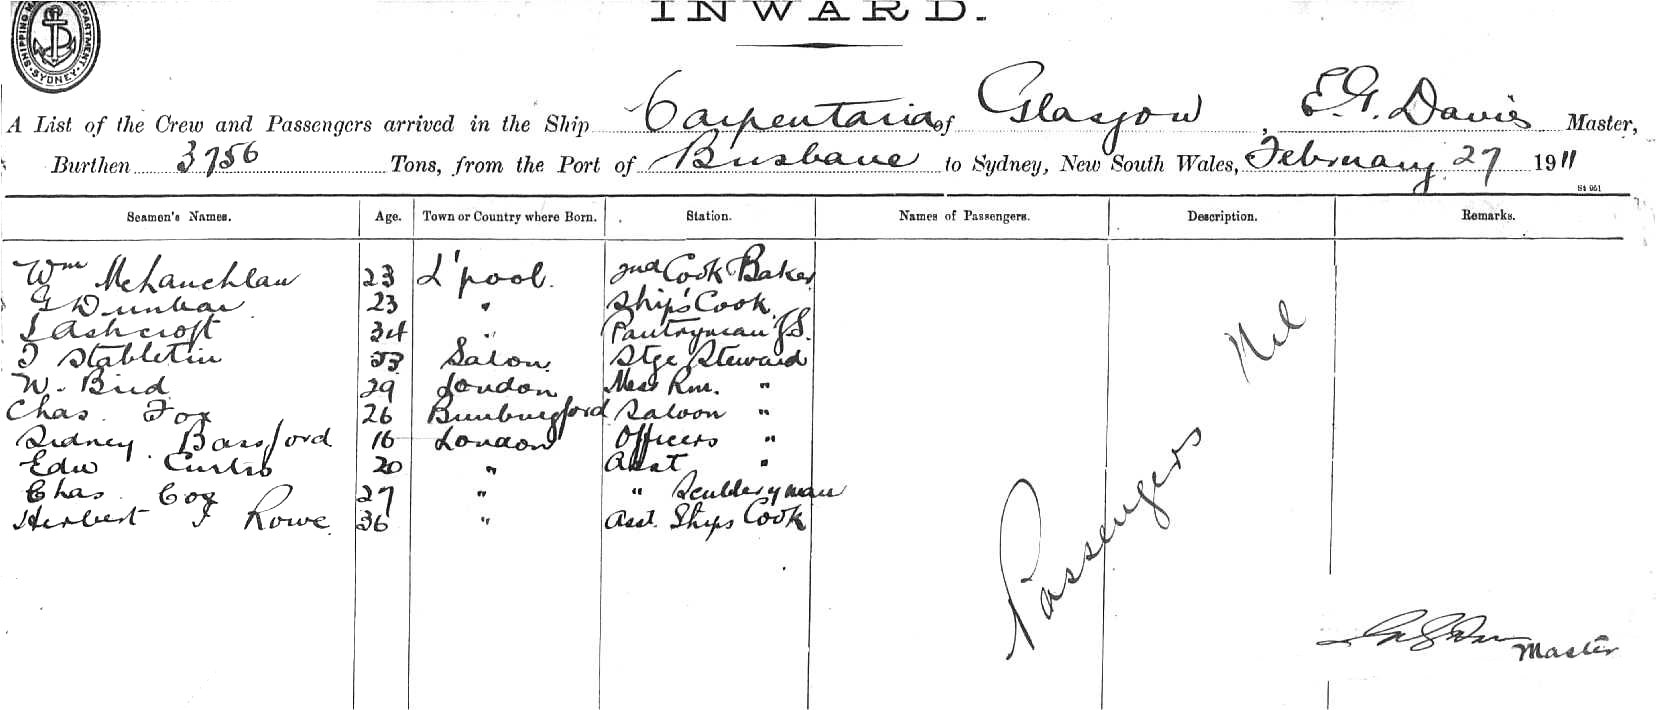 INWARD.
SHIPPING DEPARTMENT SYDNEY
A List of the Crew and Passengers arrived in the Ship Carpentaria of Glasgow, E.G. Davis Master,
Burthen 3756 Tons, from the Port of Brisbane to Sydney, New South Wales, February 27 1911
St 961
Seamen's Names. Age. Town or Country where Born. Station. Names of Passengers. Description. Remarks.
Wm McLauchlan 23 L'pool. 2nd Cook Baker
G Dunbar 23 " Ship's Cook
Ashcroft 34 " Pantryman
Stabletin 53 Salon Stge Steward
W. Bird 29 London Mess Rm. "
Chas. Fox 26 Buntingford Saloon "
Sidney Bassford 16 London Officers "
Edw Curtis 20 " Asst "
Chas. Cox 27 " " Sculleryman
Herbert F Rowe 36 " Asst. Ships Cook
Passengers Nil
Master